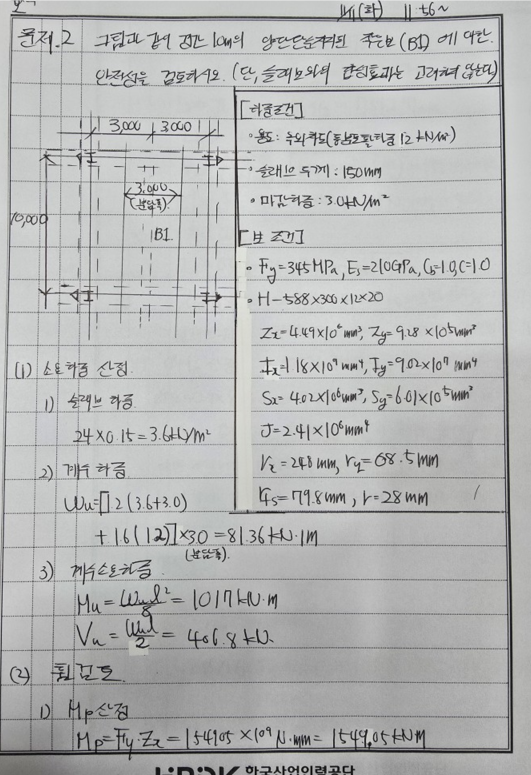 11/11 (화) 11:56~
문제.2 그림과 같이 경간 10m의 양단단순지지된 작은보(B1)에 대한
안전성을 검토하시오. (단, 슬래브와의 합성효과는 고려하지 않는다)
3,000 3,000
3,000
(분담폭)
10,000
B1
[하중조건]
• 용도: 옥외광장(활하중 12 kN/m²)
• 슬래브 두께 : 150mm
• 마감하중: 3.0kN/m²
[보 조건]
• Fy=345MPa, Es=210GPa, Cb=1.0, C=1.0
• H-588×300×12×20
Zx=4.49×10⁶mm³, Zy=9.28×10⁵mm³
Ix=1.18×10⁹mm⁴, Iy=9.02×10⁷mm⁴
Sx=4.02×10⁶mm³, Sy=6.01×10⁵mm³
J=2.41×10⁶mm⁴
rx=248mm, ry=68.5mm
rts=79.8mm, r=28mm
(1) 소요하중 산정
1) 슬래브 하중
24×0.15=3.6kN/m²
2) 계수 하중
Wu=[1.2(3.6+3.0)
+1.6(12)]×3.0=81.36kN/m
(분담폭).
3) 계수소요하중
Mu=Wul²/8=1017kN·m
Vu=Wul/2=406.8kN.
(2) 휨검토
1) Mp산정
Mp=Fy·Zx=1.54905×10⁹N·mm=1549.05kN·m
한국산업인력공단